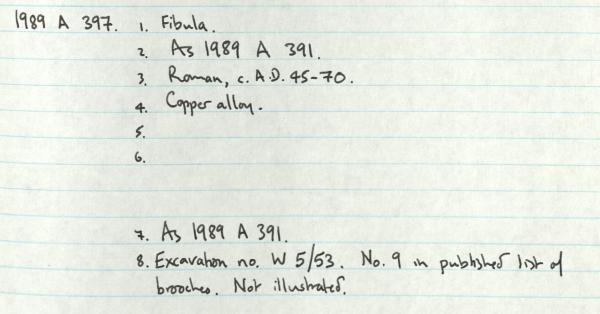 1989 A 397. 1. Fibula.
2. As 1989 A 391.
3. Roman, c. A.D. 45-70.
4. Copper alloy.
5.
6.
7. As 1989 A 391.
8. Excavation no. W 5/53. No. 9 in published list of
brooches. Not illustrated.